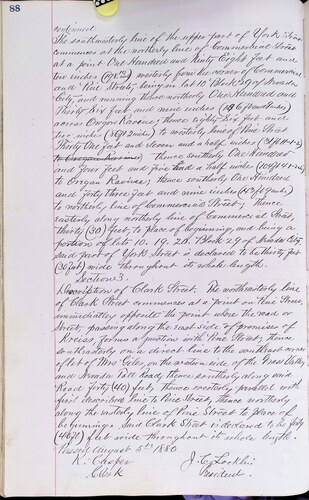 88
continued
The southwesterly line of the upper part of York Street
commences at the northerly line of Commercial Street
at a point One Hundred and Ninety Eight feet and
two inches westerly from the corner of Commercial
and Pine Streets, being in lot 10 Block 29 of Nevada
City, and running thence northerly One Hundred and
Thirty Six feet and nine inches
across Oregon Ravine; thence Eighty Six feet and
two inches to westerly line of Pine Street
Thirty One feet and eleven and a half inches
thence southerly One Hundred
and four feet and five and a half inches
to Oregon Ravine; thence southerly One Hundred
and forty three feet and nine inches
to northerly line of Commercial Street; thence
easterly along northerly line of Commercial Street,
thirty (30) feet, to place of beginning, and being a
portion of lots 10. 19. 20. Block 29 of Nevada City.
Said part of York Street is declared to be thirty feet
(30 feet) wide throughout its whole length.
Section 3.
Description of Clark Street. The northeasterly line
of Clark Street commences at a point on Pine Street,
immediately opposite the point where the road or
Street, passing along the east side of premises of
Kreiss, forms a junction with Pine Street; thence
southeasterly on a direct line to the southeast corner
of lot of Mrs Giles on the western side of the Grass Valley
and Nevada Toll Road; thence southerly along said
Road forty (40) feet; thence westerly parallel with
first described line to Pine Street; thence northerly
along the easterly line of Pine Street to place of
beginning. Said Clark Street is declared to be forty
(40 ft) feet wide throughout its whole length.
Passed August 5th 1880
K. Casper J. C. Locklin
Clerk President